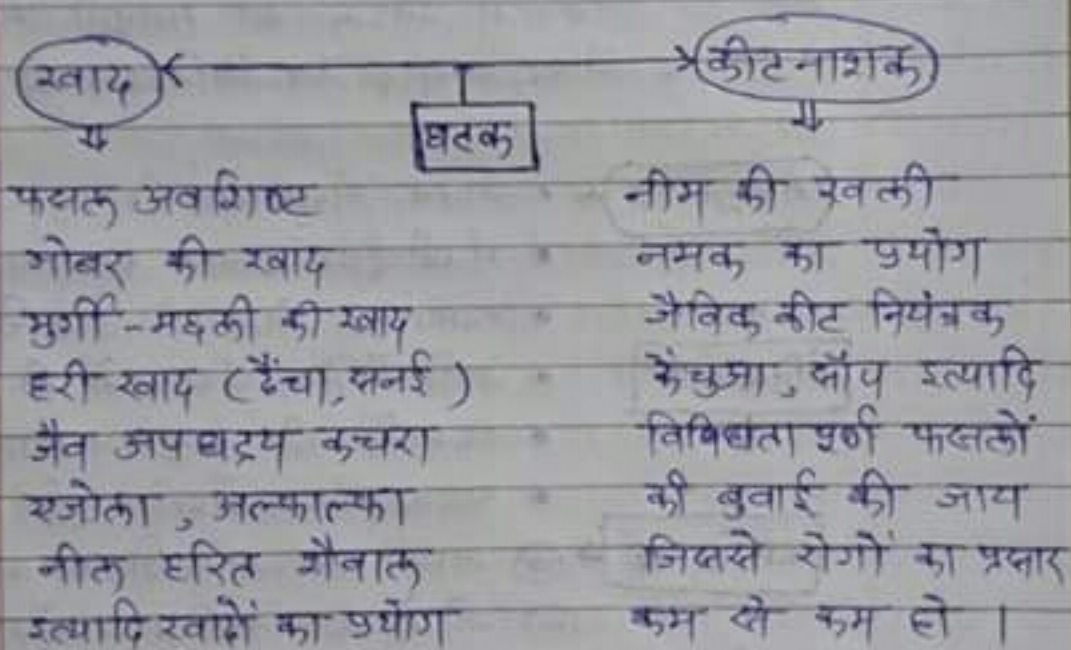 खाद
कीटनाशक
घटक
फसल अवशिष्ट
गोबर की खाद
मुर्गी-मछली की खाद
हरी खाद (ढैंचा, सनई)
जैव अपघट्य कचरा
एजोला, अल्फाल्फा
नील हरित शैवाल
इत्यादि खादों का प्रयोग
नीम की खली
नमक का प्रयोग
जैविक कीट नियंत्रक
केंचुआ, साँप इत्यादि
विविधता पूर्ण फसलों
की बुवाई की जाय
जिससे रोगों का प्रसार
कम से कम हो ।